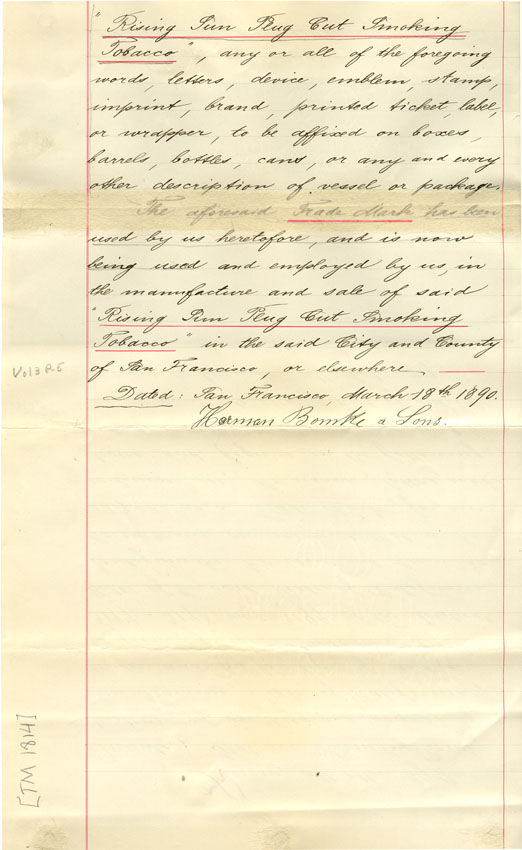 "Rising Sun Plug Cut Smoking
Tobacco", any or all of the foregoing
words, letters, device, emblem, stamp,
imprint, brand, printed ticket, label,
or wrapper, to be affixed on boxes,
barrels, bottles, cans, or any and every
other description of vessel or package.
The aforesaid Trade Mark has been
used by us heretofore, and is now
being used and employed by us, in
the manufacture and sale of said
"Rising Sun Plug Cut Smoking
Tobacco" in the said City and County
of San Francisco, or elsewhere
Vol 3 P. 5
Dated: San Francisco, March 18th 1890.
Herman & Sons.
[TM 1814]